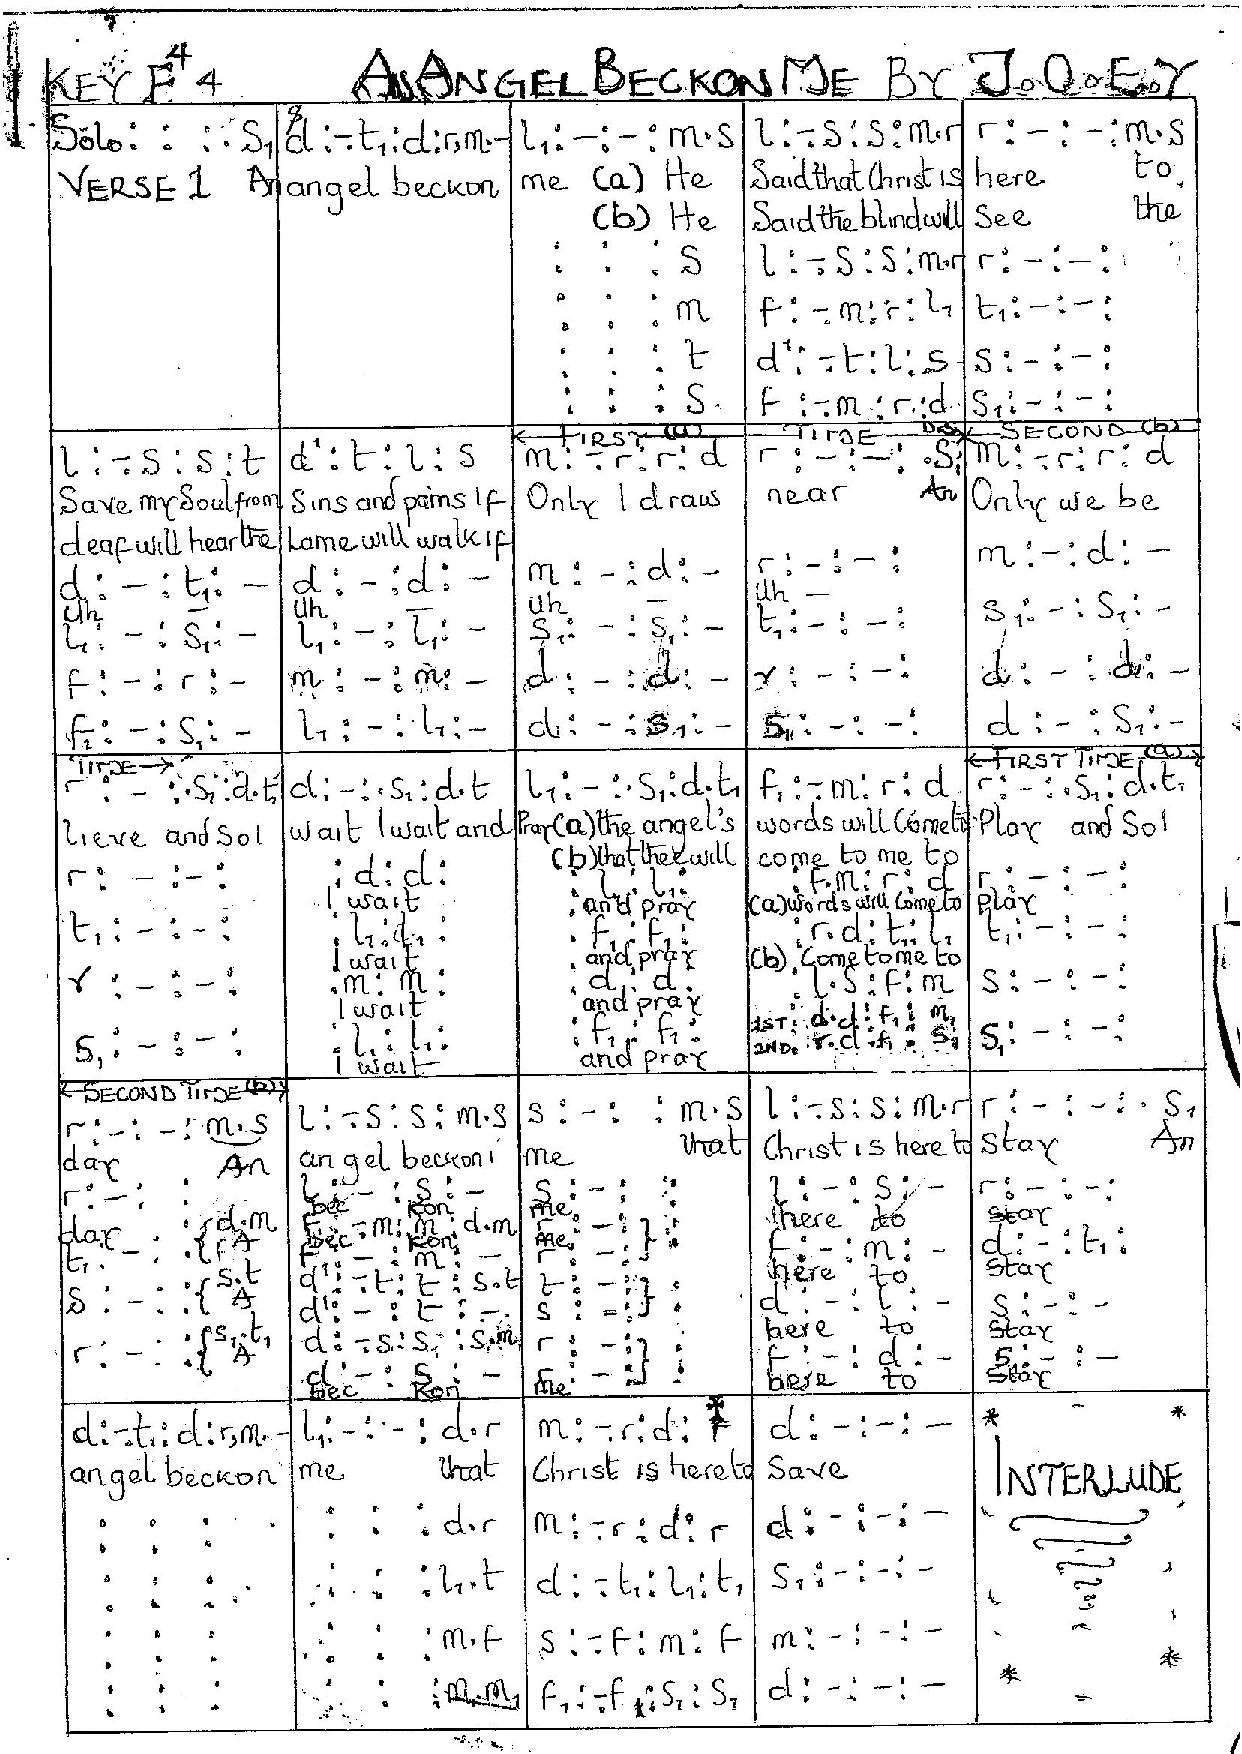 KEY F 4 4 AN ANGEL BECKON ME BY J.O.E.Y
Solo: : : . S₁ d:-t₁:d:r,m.- l₁:-:-:m.s l:-s:s:m.r r:-:-:m.s
VERSE 1 An angel beckon me (a) He Said that Christ is here to
(b) He Said the blind will See the
: : : s l:-s:s:m.r r:-:-:
: : : m f:-m:r:l₁ t₁:-:-:
: : : t d':-t:l:s s:-:-:
: : : s f:-m:r:d s₁:-:-:
FIRST (a) TIME D.S SECOND (b)
l:-s:s:t d':t:l:s m:-r:r:d r:-:-:.s₁ m:-r:r:d
Save my Soul from Sins and pains If Only I draw near An Only we be
deaf will hear the Lame will walk if
d:-:t₁:- d:-:d:- m:-:d:- r:-:-: m:-:d:-
Uh Uh Uh Uh
l₁:-:s₁:- l₁:-:l₁:- s₁:-:s₁:- t₁:-:-: s₁:-:s₁:-
f:-:r:- m:-:m:- d:-:d:- r:-:-: d:-:d:-
f₁:-:s₁:- l₁:-:l₁:- d:-:s₁:- s₁:-:-: d:-:s₁:-
TIME FIRST TIME (a)
r:-:.s₁:d.t₁ d:-:.s₁:d.t l₁:-:.s₁:d.t₁ f₁:-m:r:d r:-:.s₁:d.t₁
lieve and So I wait I wait and Pray (a) the angel's words will Come to Play and So I
(b) that they will come to me to
r:-:-: :d:d: :l:l: :f.m:r:d r:-:-:
I wait and pray (a) words will Come to play
t₁:-:-: :l₁:l₁: :f₁:f₁: :r.d:t₁:l₁ t₁:-:-:
I wait and pray (b) Come to me to
r:-:-: :m:m: :d:d: :l.s:f:m s:-:-:
I wait and pray
s₁:-:-: :l₁:l₁: :f₁:f₁: 1ST: d.d:f₁:m₁ s₁:-:-:
I wait and pray 2ND. r.d:f₁:s₁
SECOND TIME (b)
r:-:-:m.s l:-s:s:m.s s:-: :m.s l:-s:s:m.r r:-:-:.s₁
day An angel beckon me that Christ is here to Stay An
r:-: l:-:s:- s:-: : l:-:s:- r:-:-:
day d.m Bec kon me, here to stay
A f:-m:m:d.m
Bec kon me
t₁:-: f:-:m:- r:-: f:-:m:- d:-:t₁:
s.t d':-t:t:s.t t:-: here to stay
s:-: A d':-:t:- s:-: d:-:t:- s:-:-
s₁.t₁ here to stay
r:-: A d:-s:s:s.m r:-: f:-:d:- s:-:-
d:-:s:- Bec kon me here to stay
d:-t₁:d:r,m.- l₁:-:-:d.r m:-r:d:r d:-:-:-
angel beckon me that Christ is here to Save INTERLUDE
: : : . : : :d.r m:-r:d:r d:-:-:-
: : : . : : :l₁.t d:-t₁:l₁:t₁ s₁:-:-:-
: : : : : :m.f s:-f:m:f m:-:-:-
: : : : : :m.m₁ f₁:-f₁:s₁:s₁ d:-:-:-